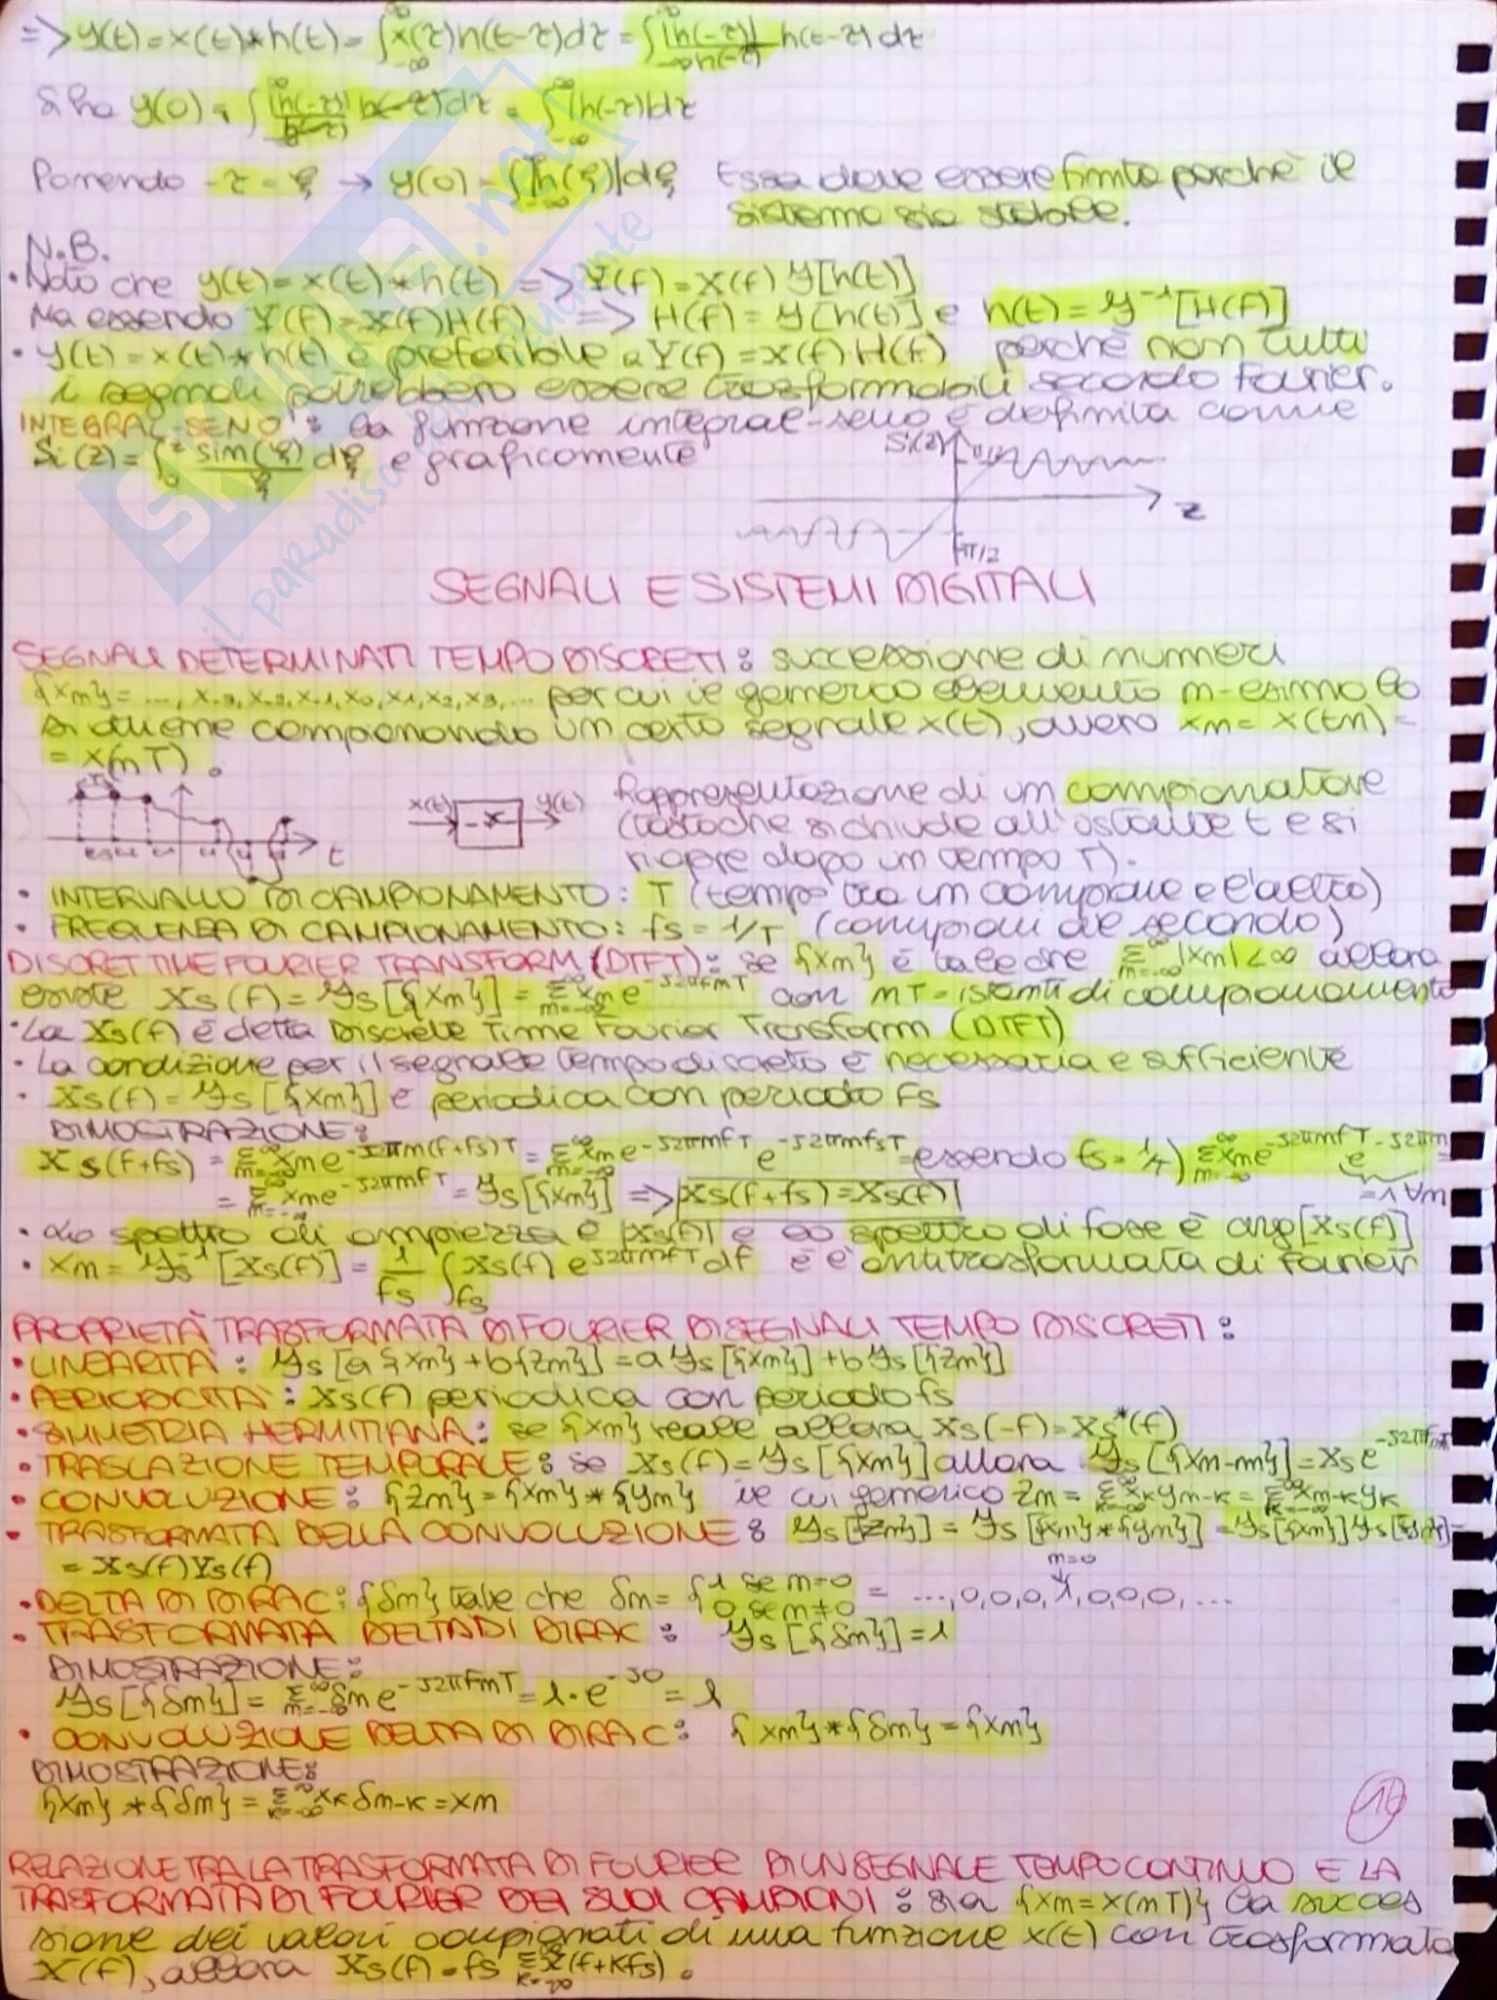 => y(t) = x(t)*h(t) = ∫_{-∞}^{∞} x(τ)h(t-τ)dτ = ∫_{-∞}^{∞} |h(-τ)|/h(-τ) h(t-τ) dτ
Si ha y(0) = ∫ |h(-τ)|/h(-τ) h(-τ)dτ = ∫_{-∞}^{∞} |h(-τ)|dτ
Ponendo -τ = ξ → y(0) = ∫_{-∞}^{∞} |h(ξ)|dξ Essa deve essere finita perché il
sistema sia stabile.
N.B.
• Noto che y(t) = x(t)*h(t) => Y(f) = X(f) F[h(t)]
Ma essendo Y(f) = X(f)H(f) => H(f) = F[h(t)] e h(t) = F⁻¹[H(f)]
• y(t) = x(t)*h(t) è preferibile a Y(f) = X(f)H(f) perché non tutti
i segnali potrebbero essere trasformabili secondo Fourier.
INTEGRAL-SENO: la funzione integral-seno è definita come
Si(z) = ∫_0^z sin(ξ)/ξ dξ e graficamente
Si(z)
z
π/2
SEGNALI E SISTEMI DIGITALI
SEGNALI DETERMINATI TEMPO DISCRETI: successione di numeri
{xn} = ..., x-3, x-2, x-1, x0, x1, x2, x3, ... per cui il generico elemento n-esimo lo
si ottiene campionando un certo segnale x(t), ovvero xn = x(tn) =
= x(nT).
T
t
x(t) y(t) Rappresentazione di un campionatore
(tasto che si chiude all'istante t e si
riapre dopo un tempo T).
• INTERVALLO DI CAMPIONAMENTO: T (tempo tra un campione e l'altro)
• FREQUENZA DI CAMPIONAMENTO: fs = 1/T (campioni al secondo)
DISCRETE TIME FOURIER TRANSFORM (DTFT): se {xn} è tale che Σ_{n=-∞}^{∞} |xn| < ∞ allora
esiste Xs(f) = Fs[{xn}] = Σ_{n=-∞}^{∞} xn e^{-j2πfnT} con nT = istanti di campionamento
• La Xs(f) è detta Discrete Time Fourier Transform (DTFT)
• La condizione per il segnale tempo discreto è necessaria e sufficiente
• Xs(f) = Fs[{xn}] è periodica con periodo fs
DIMOSTRAZIONE:
Xs(f+fs) = Σ_{n=-∞}^{∞} xn e^{-j2πn(f+fs)T} = Σ_{n=-∞}^{∞} xn e^{-j2πnfT} e^{-j2πnfsT} = essendo fs = 1/T) Σ_{n=-∞}^{∞} xn e^{-j2πnfT} e^{-j2πn} =
= Σ_{n=-∞}^{∞} xn e^{-j2πnfT} = Fs[{xn}] => Xs(f+fs) = Xs(f) =1 ∀n
• Lo spettro di ampiezza è |Xs(f)| e lo spettro di fase è arg[Xs(f)]
• xn = Fs⁻¹[Xs(f)] = 1/fs ∫_{fs} Xs(f) e^{j2πnfT} df è l'antitrasformata di Fourier
PROPRIETÀ TRASFORMATA DI FOURIER DI SEGNALI TEMPO DISCRETI:
• LINEARITÀ: Fs[a{xn}+b{zn}] = aFs[{xn}]+bFs[{zn}]
• PERIODICITÀ: Xs(f) periodica con periodo fs
• SIMMETRIA HERMITIANA: se {xn} reale allora Xs(-f) = Xs*(f)
• TRASLAZIONE TEMPORALE: se Xs(f) = Fs[{xn}] allora Fs[{xn-m}] = Xs e^{-j2πfmT}
• CONVOLUZIONE: {zn} = {xn}*{yn} il cui generico zn = Σ_{k=-∞}^{∞} xk yn-k = Σ_{k=-∞}^{∞} xn-k yk
• TRASFORMATA DELLA CONVOLUZIONE: Fs[{zn}] = Fs[{xn}*{yn}] = Fs[{xn}]Fs[{yn}] =
= Xs(f)Ys(f)
n=0
• DELTA DI DIRAC: {δn} tale che δn = {1 se n=0 0 se n≠0 = ...,0,0,0,1,0,0,0,...
• TRASFORMATA DELTA DI DIRAC: Fs[{δn}] = 1
DIMOSTRAZIONE:
Fs[{δn}] = Σ_{n=-∞}^{∞} δn e^{-j2πfnT} = 1·e^{-j0} = 1
• CONVOLUZIONE DELTA DI DIRAC: {xn}*{δn} = {xn}
DIMOSTRAZIONE:
{xn}*{δn} = Σ_{k=-∞}^{∞} xk δn-k = xn
RELAZIONE TRA LA TRASFORMATA DI FOURIER DI UN SEGNALE TEMPO CONTINUO E LA
TRASFORMATA DI FOURIER DEI SUOI CAMPIONI: sia {xn = x(nT)} la succes
sione dei valori campionati di una funzione x(t) con trasformata
X(f), allora Xs(f) = fs Σ_{k=-∞}^{∞} X(f+kfs).